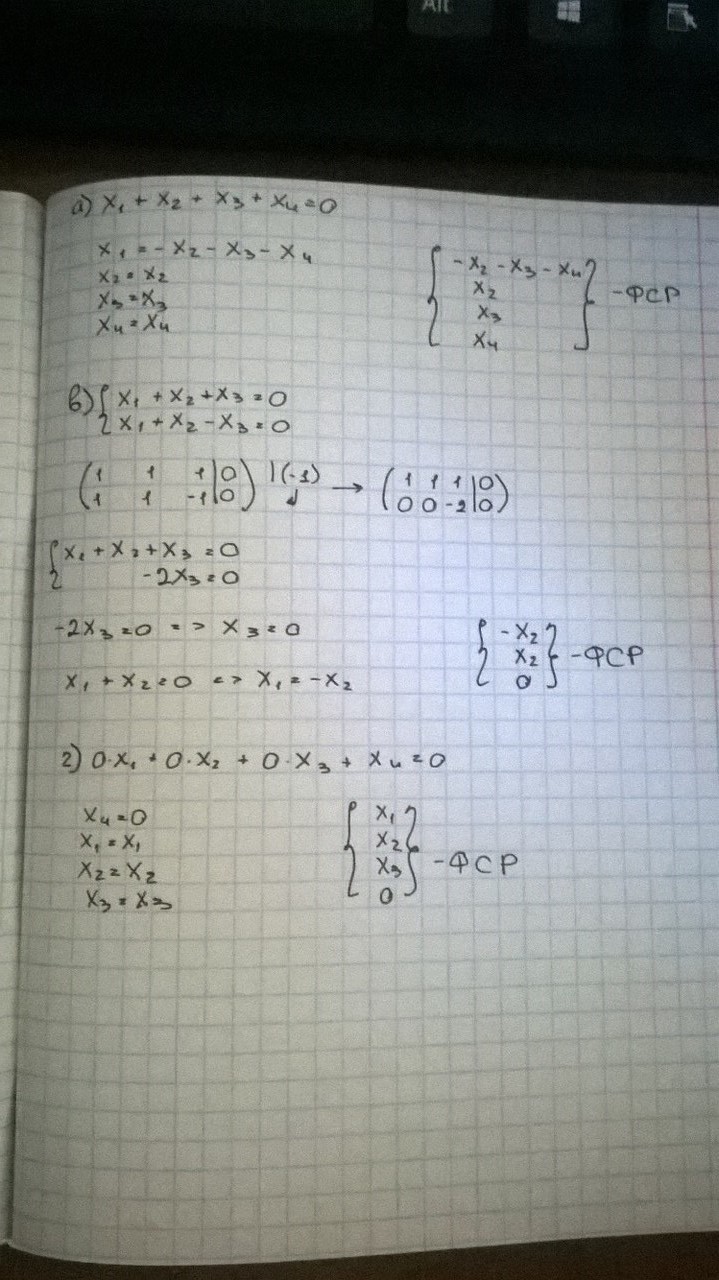 Alt
а) x₁ + x₂ + x₃ + x₄ = 0
x₁ = - x₂ - x₃ - x₄
x₂ = x₂
x₃ = x₃
x₄ = x₄
{ -x₂ - x₃ - x₄
x₂
x₃
x₄ } - ФСР
в) { x₁ + x₂ + x₃ = 0
x₁ + x₂ - x₃ = 0
( 1 1 1 | 0
1 1 -1 | 0 ) |(-1) ↓ → ( 1 1 1 | 0
0 0 -2 | 0 )
{ x₁ + x₂ + x₃ = 0
-2x₃ = 0
-2x₃ = 0 => x₃ = 0
x₁ + x₂ = 0 => x₁ = -x₂
{ -x₂
x₂
0 } - ФСР
г) 0·x₁ + 0·x₂ + 0·x₃ + x₄ = 0
x₄ = 0
x₁ = x₁
x₂ = x₂
x₃ = x₃
{ x₁
x₂
x₃
0 } - ФСР